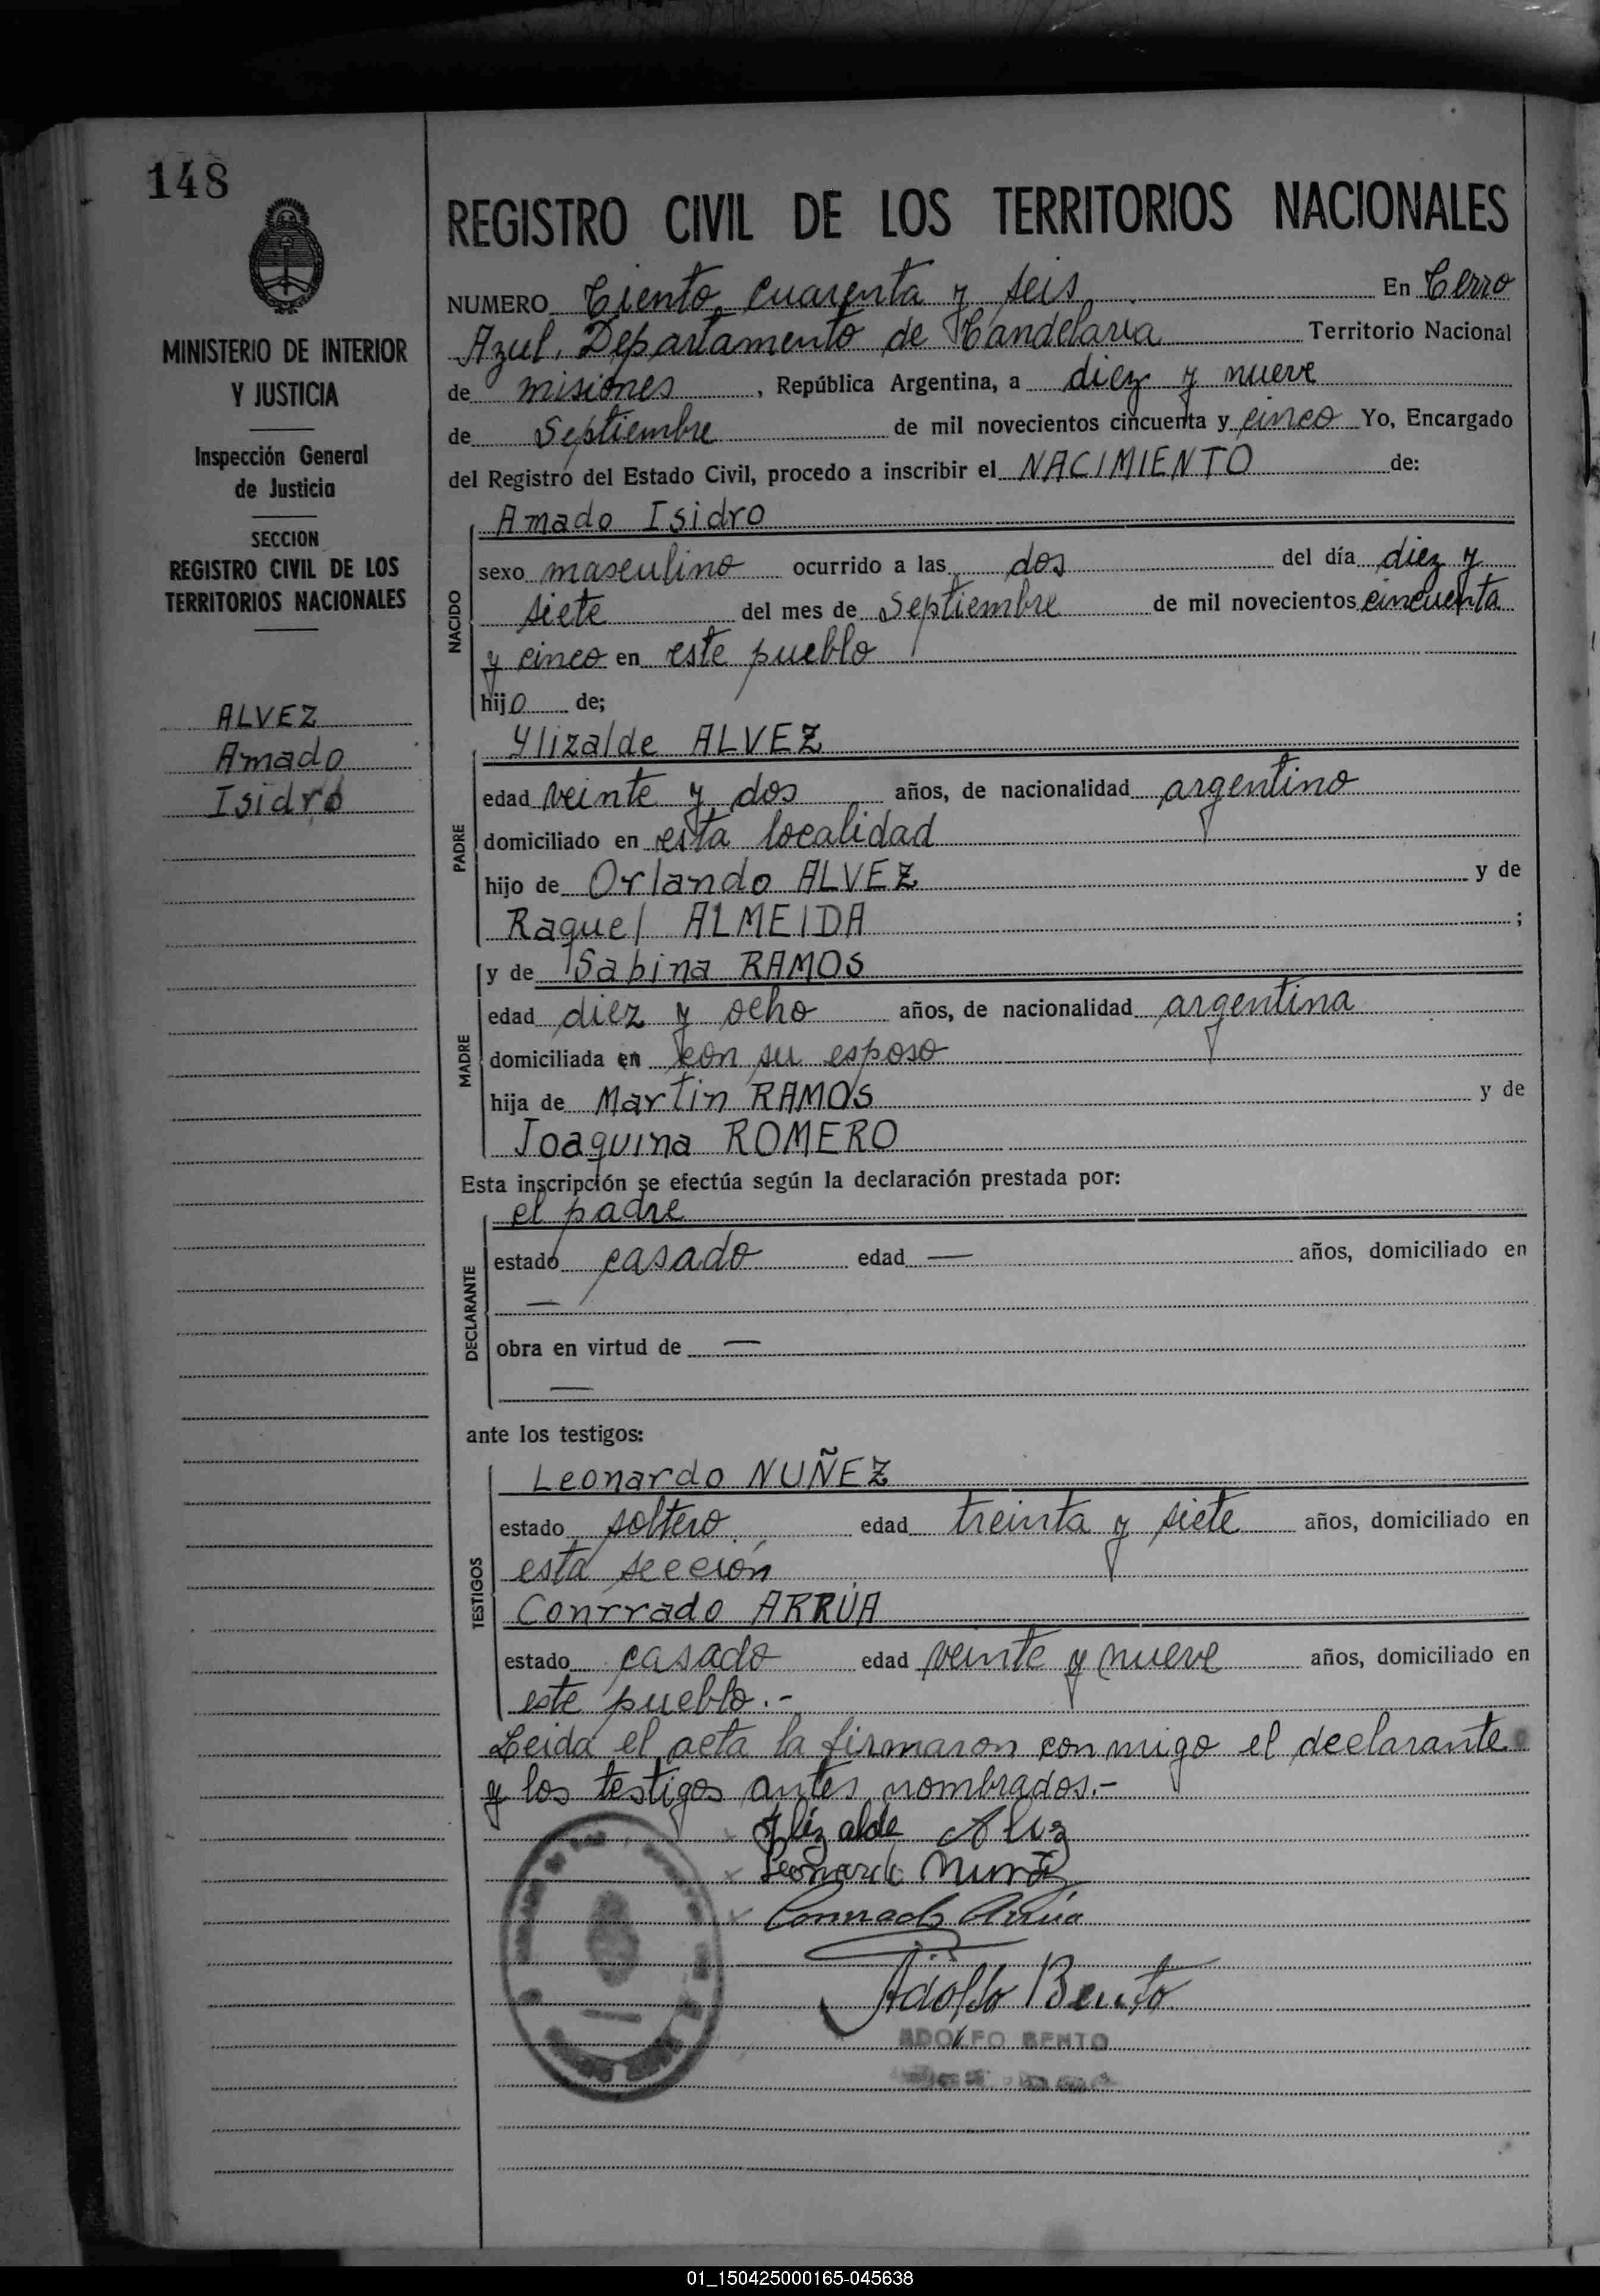 148
MINISTERIO DE INTERIOR
Y JUSTICIA
Inspección General
de Justicia
SECCION
REGISTRO CIVIL DE LOS
TERRITORIOS NACIONALES
ALVEZ
Amado
Isidro
REGISTRO CIVIL DE LOS TERRITORIOS NACIONALES
NUMERO Ciento cuarenta y seis En Cerro
Azul, Departamento de Candelaria Territorio Nacional
de misiones, República Argentina, a diez y nueve
de Septiembre de mil novecientos cincuenta y cinco Yo, Encargado
del Registro del Estado Civil, procedo a inscribir el NACIMIENTO de:
Amado Isidro
NACIDO
sexo masculino ocurrido a las dos del día diez y
siete del mes de Septiembre de mil novecientos cincuenta
y cinco en este pueblo
hijo de;
Ylizalde ALVEZ
PADRE
edad veinte y dos años, de nacionalidad argentino
domiciliado en esta localidad
hijo de Orlando ALVEZ y de
Raquel ALMEIDA ;
y de Sabina RAMOS
MADRE
edad diez y ocho años, de nacionalidad argentina
domiciliada en con su esposo
hija de Martin RAMOS y de
Joaquina ROMERO
Esta inscripción se efectúa según la declaración prestada por:
el padre
DECLARANTE
estado casado edad — años, domiciliado en
—
obra en virtud de —
—
ante los testigos:
Leonardo NUÑEZ
TESTIGOS
estado soltero edad treinta y siete años, domiciliado en
esta sección
Conrrado ARRÚA
estado casado edad veinte y nueve años, domiciliado en
este pueblo.-
Leida el acta la firmaron conmigo el declarante
y los testigos antes nombrados.-
Ylizalde Alvez
Leonardo Nuñez
Conrrado Arrúa
Adolfo Bento
ADOLFO BENTO
01_150425000165-045638